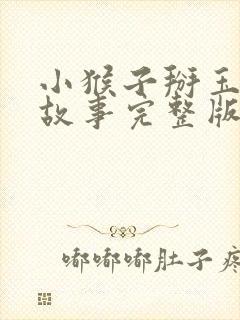 小猴子掰玉
故事完整版
嘟嘟嘟肚子疼